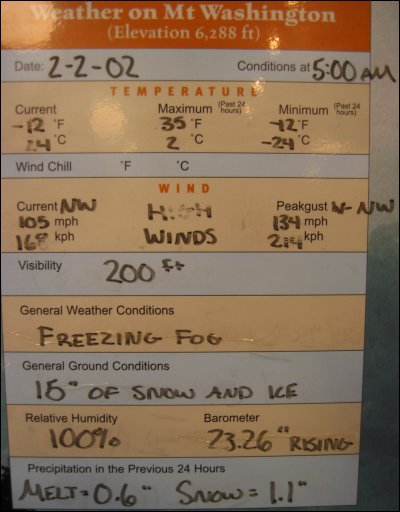 Weather on Mt Washington
(Elevation 6,288 ft)
Date: 2-2-02 Conditions at 5:00 AM
TEMPERATURE
Current Maximum (Past 24 hours) Minimum (Past 24 hours)
-12 °F 35 °F -12 °F
24 °C 2 °C -24 °C
Wind Chill °F °C
WIND
Current NW HIGH Peakgust W-NW
105 mph WINDS 134 mph
168 kph 214 kph
Visibility 200 ft
General Weather Conditions
FREEZING FOG
General Ground Conditions
15" OF SNOW AND ICE
Relative Humidity Barometer
100% 23.26" RISING
Precipitation in the Previous 24 Hours
MELT = 0.6" SNOW = 1.1"